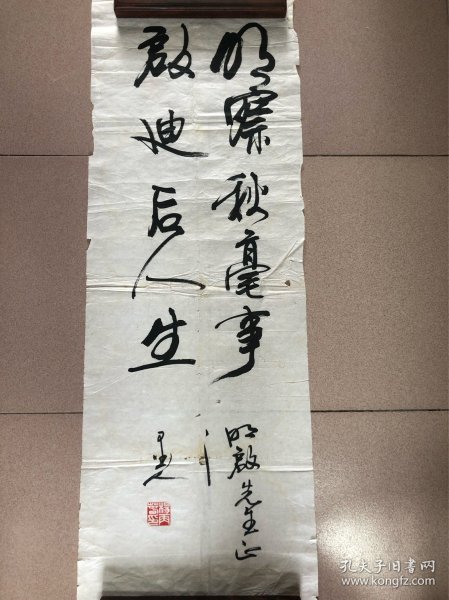 明察秋毫事
启迪后人生
明启先生正
孔夫子旧书网
www.kongfz.com